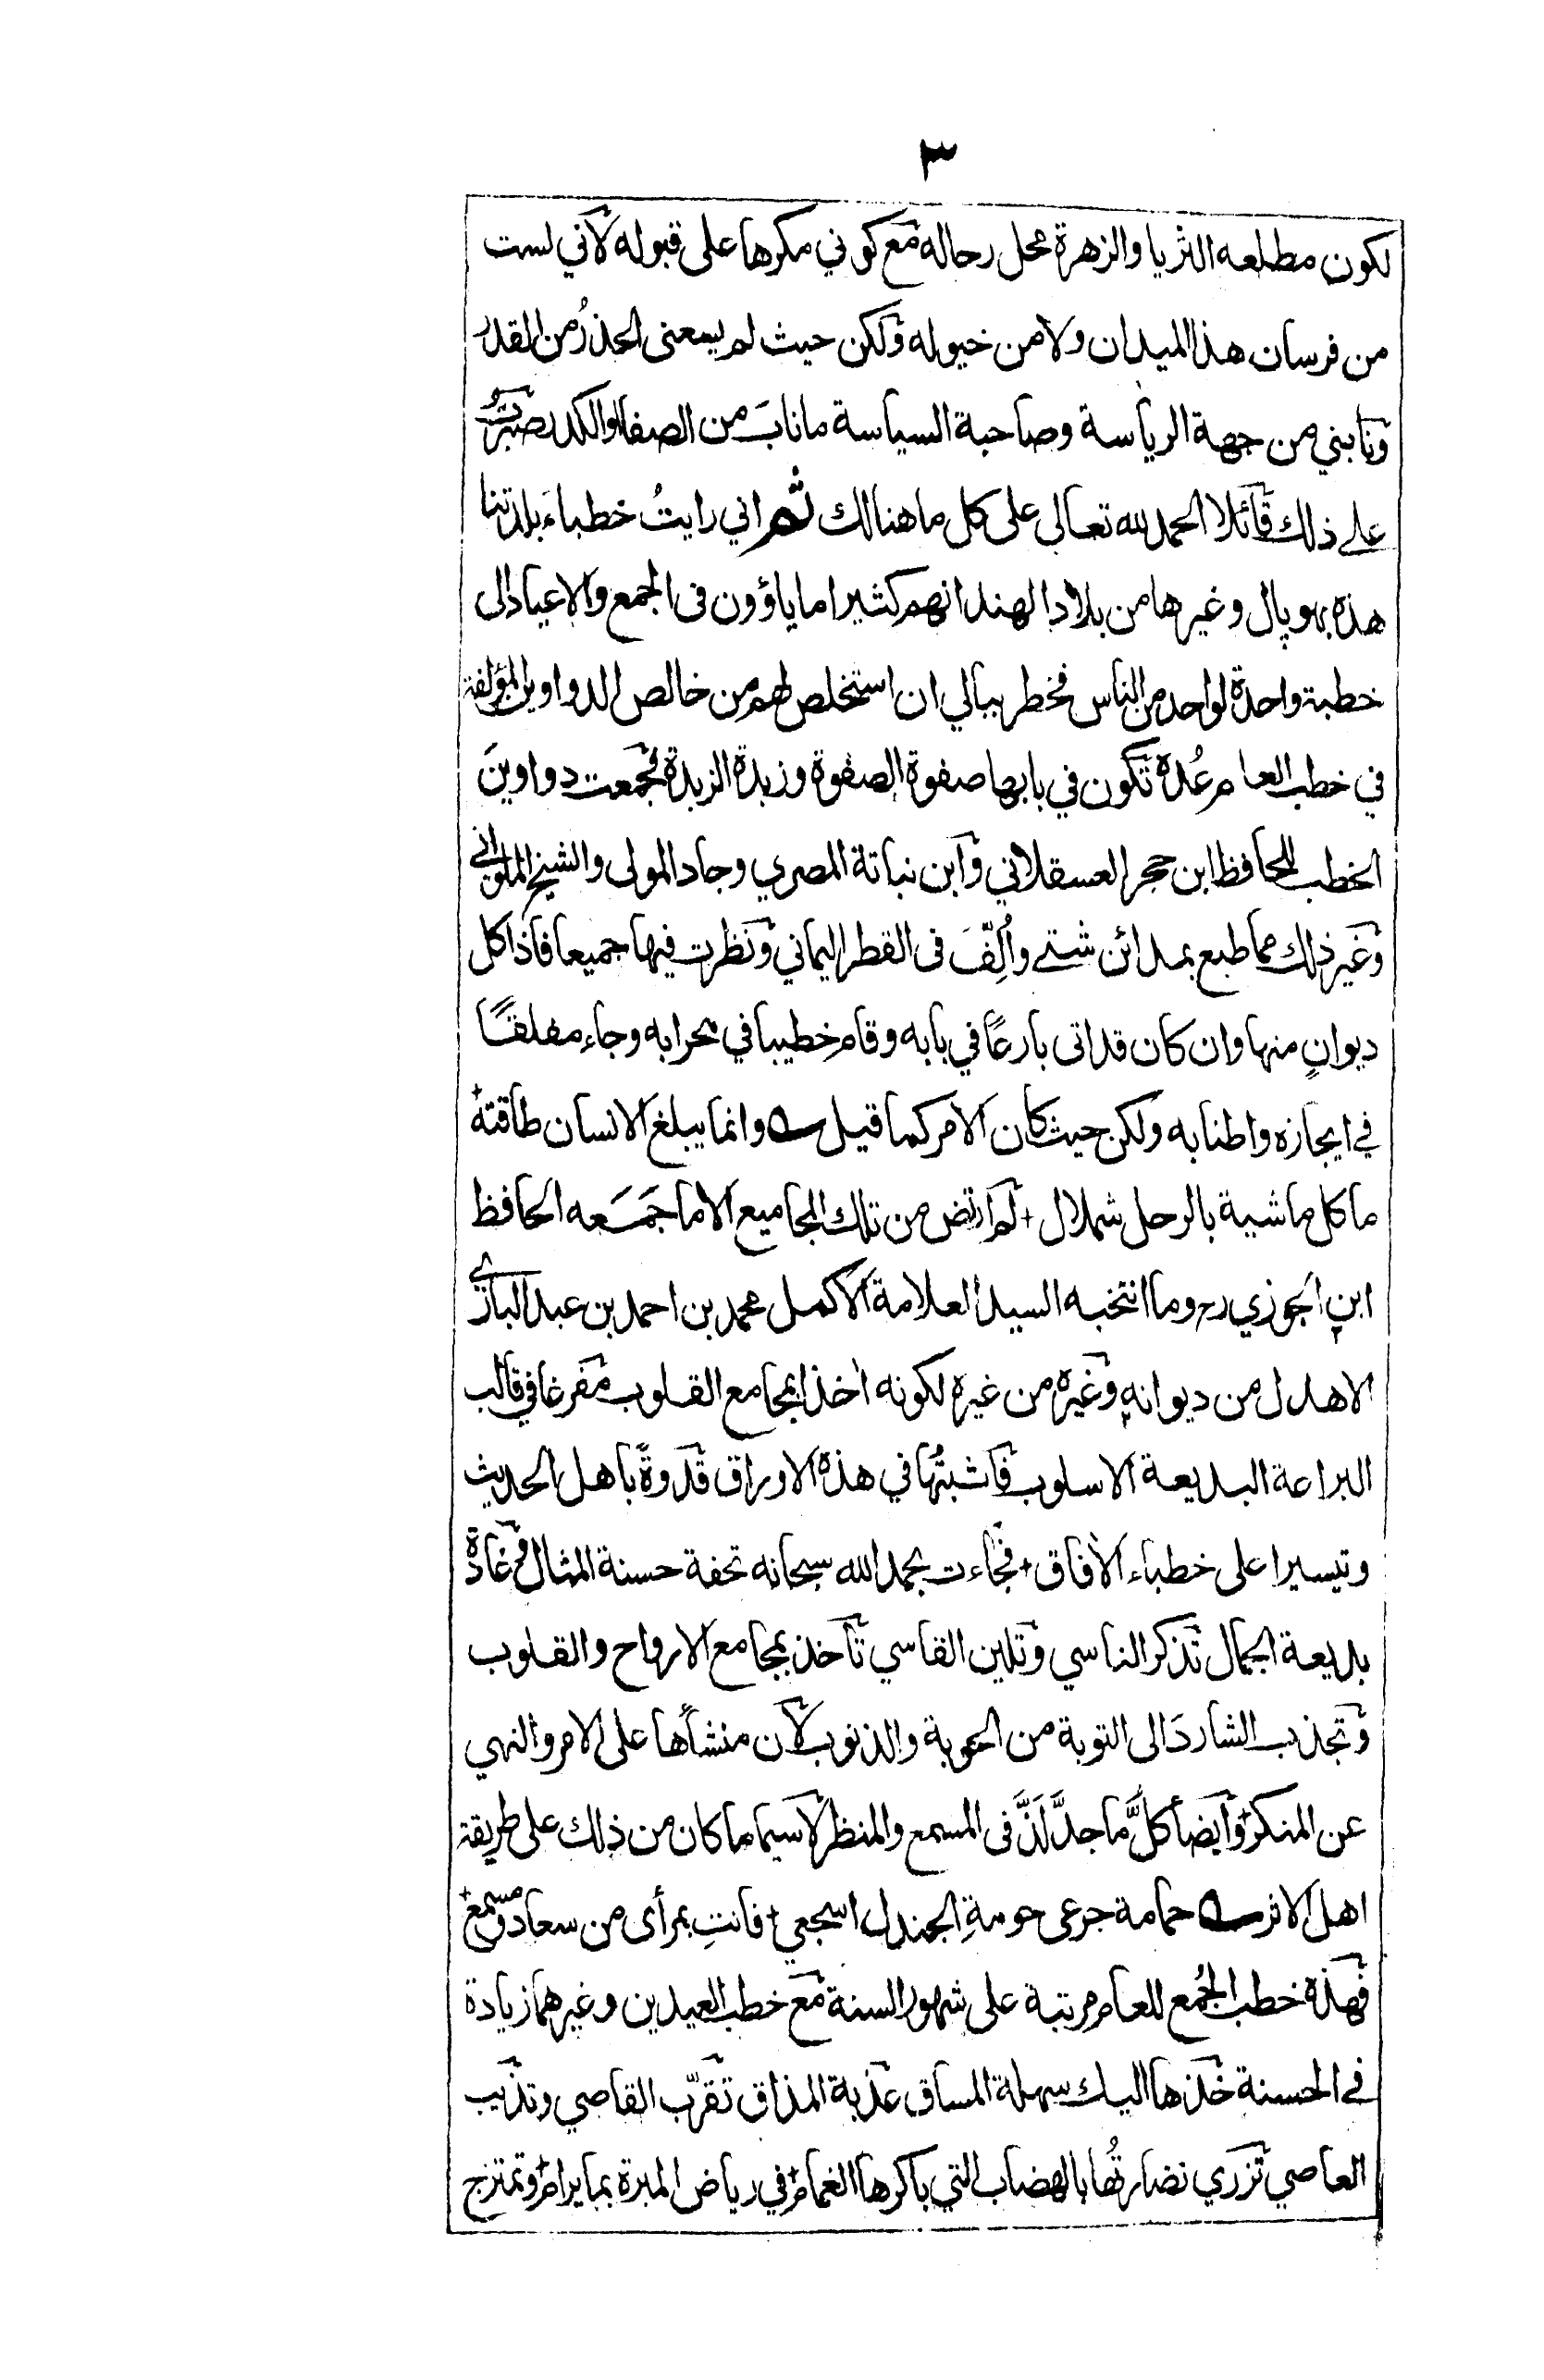 ٣
لكون مطلعه الثريا والزهرة محل رحاله مع كوني مكرها على قبوله لأني لست
من فرسان هذا الميدان ولا من خيوله ولكن حيث لم يسعنى الحذرُ من القدر
ونابني من جهة الرياسة وصاحبة السياسة ما نابَ من الصفا والكدر صبرتُ
على ذلك قائلا الحمد لله تعالى على كل ما هنالك ثم اني رايتُ خطباءَ بلدتنا
هذه بهوپال وغيرها من بلاد الهند انهم كثيرا ما ياؤون فى الجمع والاعياد الى
خطبة واحدة لواحد من الناس فخطر ببالي ان استخلص لهم من خالص الدواوين المؤلفة
في خطب العام عُدة تكون في بابها صفوة الصفوة وزبدة الزبدة فجمعت دواوينَ
الخطب للحافظ ابن حجر العسقلاني وابن نباتة المصري وجاد المولى والشيخ
وغير ذلك مما طبع بمدائن شتى واُلِّفَ فى القطر اليماني ونظرت فيها جميعا فاذا كل
ديوانٍ منها وان كان قد اتى بارعًا في بابه وقام خطيبا في محرابه وجاء مفلقًا
في ايجازه واطنابه ولكن حيث كان الأمر كما قيل وانما يبلغ الانسان طاقته
ما كل ماشية بالرحل شملال + لم ارتض من تلك المجاميع الا ما جَمَعَه الحافظ
ابن الجوزي رح وما انتخبه السيد العلامة الأكمل محمد بن احمد بن عبد الباري
الاهدل من ديوانه وغيره من غيره لكونه اٰخذا بمجامع القلوب مفرغا في قالب
البراعة البديعة الاسلوب فاثبتُّها في هذه الاوراق قدوةً باهل الحديث
وتيسيرا على خطباء الاٰفاق + فجاءت بحمد الله سبحانه تحفة حسنة المثال وغادة
بديعة الجمال تذكر الناسي وتلين القاسي تأخذ بمجامع الارواح والقلوب
وتجذب الشاردَ الى التوبة من الحوبة والذنوب لأن منشأها على الامر والنهي
عن المنكر وايضاً كلَّ ما جدَّ لَذَّ فى المسمع والمنظر لاسيما ما كان من ذلك على طريقة
اهل الاثر حمامة جرعى حومةِ الجندل اسجعي + فانتِ بمرأى من سعاد ومسمع +
فهذه خطب الجُمع للعام مرتبة على شهور السنة مع خطب العيدين وغيرهما زيادة
في الحسنة خذها اليك سهلة المساق عذبة المذاق تقرّب القاصي وتذيب
العاصي تزري نضارتُها بالهضاب التي باكرها الغمام في رياض المبرة بما يرام وتمتزج